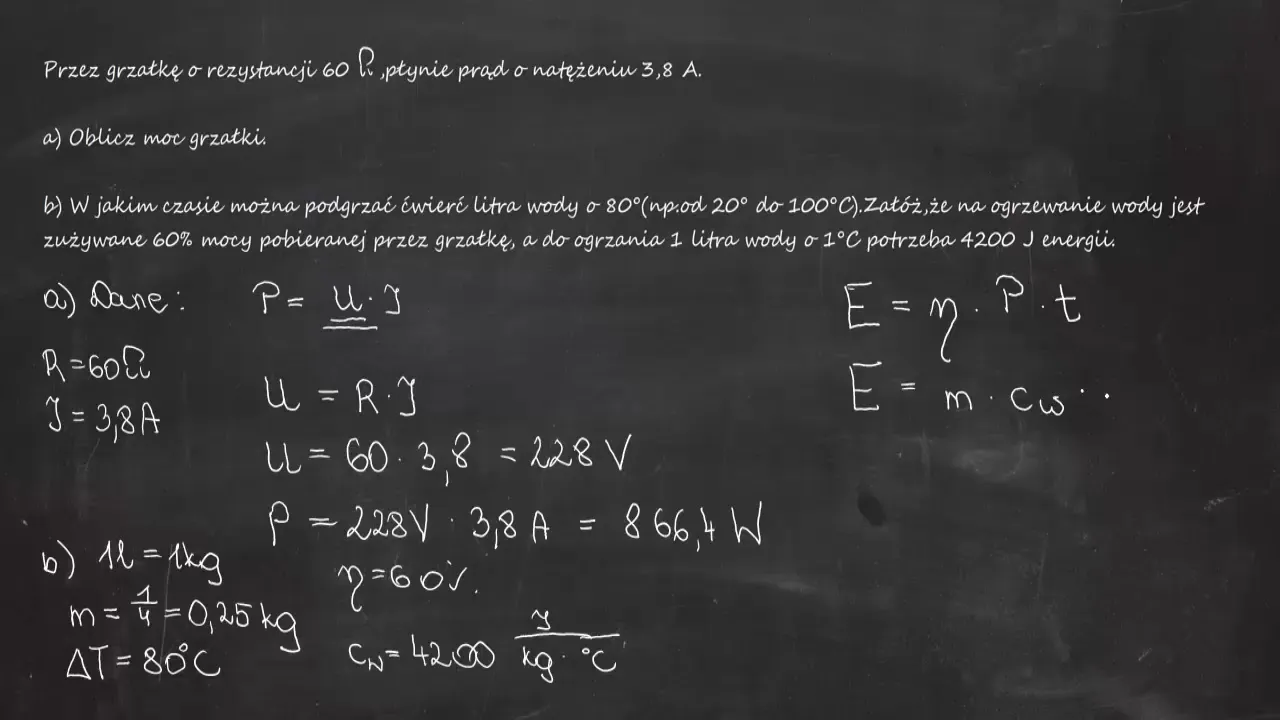 Przez grzałkę o rezystancji 60 Ω ,płynie prąd o natężeniu 3,8 A.
a) Oblicz moc grzałki.
b) W jakim czasie można podgrzać ćwierć litra wody o 80°(np.od 20° do 100°C).Załóż,że na ogrzewanie wody jest
zużywane 60% mocy pobieranej przez grzałkę, a do ogrzania 1 litra wody o 1°C potrzeba 4200 J energii.
a) Dane:
R=60Ω
J = 3,8A
P = U · J
U = R · J
U = 60 · 3,8 = 228 V
P = 228V · 3,8 A = 866,4 W
b) 1l = 1kg
m = 1/4 = 0,25 kg
ΔT = 80°C
η = 60%
cw = 4200 J/kg · °C
E = η · P · t
E = m · cw ·